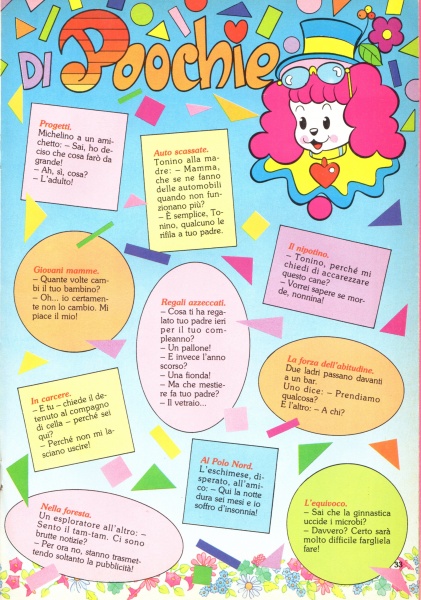 DI Poochie
Progetti.
Michelino a un ami-
chetto: – Sai, ho de-
ciso che cosa farò da
grande!
– Ah, sì, cosa?
– L'adulto!
Auto scassate.
Tonino alla ma-
dre: – Mamma,
che se ne fanno
delle automobili
quando non fun-
zionano più?
– È semplice, To-
nino, qualcuno le
rifila a tuo padre.
Il nipotino.
– Tonino, perché mi
chiedi di accarezzare
questo cane?
– Vorrei sapere se mor-
de, nonnina!
Giovani mamme.
– Quante volte cam-
bi il tuo bambino?
– Oh... io certamen-
te non lo cambio. Mi
piace il mio!
Regali azzeccati.
– Cosa ti ha rega-
lato tuo padre ieri
per il tuo com-
pleanno?
– Un pallone!
– E invece l'anno
scorso?
– Una fionda!
– Ma che mestie-
re fa tuo padre?
– Il vetraio...
La forza dell'abitudine.
Due ladri passano davanti
a un bar.
Uno dice: – Prendiamo
qualcosa?
E l'altro: – A chi?
In carcere.
– E tu – chiede il de-
tenuto al compagno
di cella – perché sei
qui?
– Perché non mi la-
sciano uscire!
Al Polo Nord.
L'eschimese, di-
sperato, all'ami-
co: – Qui la notte
dura sei mesi e io
soffro d'insonnia!
Nella foresta.
Un esploratore all'altro: –
Sento il tam-tam. Ci sono
brutte notizie?
– Per ora no, stanno trasmet-
tendo soltanto la pubblicità!
L'equivoco.
– Sai che la ginnastica
uccide i microbi?
– Davvero? Certo sarà
molto difficile fargliela
fare!
33